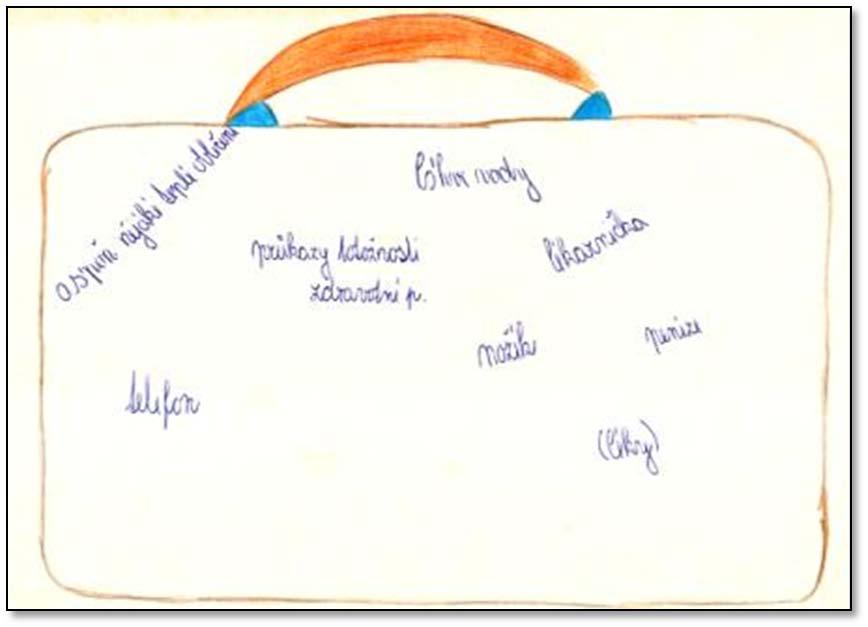 láhve vody
aspoň nějaké teplé oblečení
průkazy totožnosti
zdravotní p.
lékarnička
nožík
peníze
telefon
(léky)